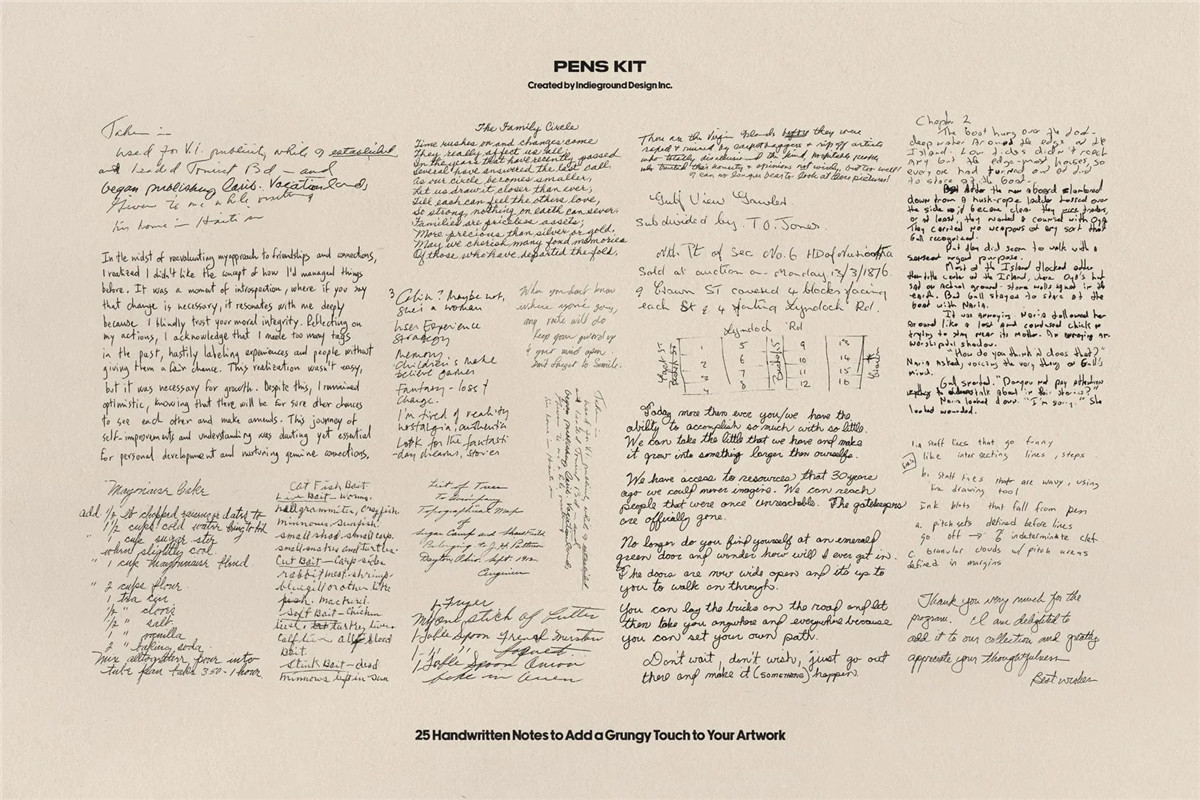 PENS KIT
Created by Indieground Design Inc.
Taken in
used for V.I. publicity while I established
and headed Tourist Bd — and
began publishing Carib. Vacationlands,
Given to me while visiting
his home in Haiti in
In the midst of reevaluating my approach to friendships and connections,
I realized I didn't like the concept of how I'd managed things
before. It was a moment of introspection, where if you say
that change is necessary, it resonates with me deeply
because I blindly trust your moral integrity. Reflecting on
my actions, I acknowledge that I made too many tags
in the past, hastily labeling experiences and people without
giving them a fair chance. This realization wasn't easy,
but it was necessary for growth. Despite this, I remained
optimistic, knowing that there will be for sure other chances
to see each other and make amends. This journey of
self-improvements and understanding was daunting yet essential
for personal development and nurturing genuine connections.
Mayonnaise Cake
add 1/2 lb chopped sausage dates to
1 1/2 cups cold water bring to boil
1 cup sugar stir
when slightly cool
" 1 cup mayonnaise blend
" 2 cups flour
1 tea cin
1/2 " cloves
1/2 " salt
1 " vanilla
2 " baking soda
Mix altogether pour into
tube pan bake 350 - 1 hour
The Family Circle
Time rushes on and changes come
They really affect us all;
In the years that have recently passed
Several have answered the last call.
As our circle becomes smaller,
Let us draw it closer than ever;
Till each can feel the others love,
So strong, nothing on earth can sever.
Families are priceless assets;
More precious than silver or gold,
May we cherish many fond memories
Of those who have departed the fold.
? Colin? Maybe not,
she's a woman
User Experience
strategy
Memory
children's make
believe games
Fantasy - lost &
change.
I'm tired of reality
nostalgia, authentic
Look for the fantasti
- day dreams, stories
When you don't know
where you're going,
any road will do
Keep your guard up
& your mind open
and forget to Smile.
Cat Fish Bait
Live Bait - worms.
hellgrammites, crayfish.
minnows, sunfish.
small shad, small carp.
smelt, smelts and turtles.
Cut Bait - carp sides
rabbit meat, shrimp.
bluegill or other little
fish. mackerel.
Soft Bait - Chicken
liver, turkey liver,
calf liver all blood
bait.
Stink Bait - dead
minnows left in sun
List of Trees
To accompany
Topographical Map
of
Sugar Camp and
Belonging to J. H. Patterson
Dayton Ohio. Sept.
1 Fryer
My one stick of butter
1 Table Spoon French Mustard
1 Table Spoon Onion
bake in oven
These are the Virgin Islands before they were
raped & ruined by carpetbaggers & rip off artists
who totally disillusioned the kind hospitable people
who trusted their honesty & opinions not wisely, but too well!
I can no longer bear to look at these pictures!
Gulf View Gawler
Subdivided by T. O. Jones.
Sold at auction on Monday, 13/3/1876.
9 Crown ST covered 4 blocks facing
each St & 4 facing Lyndoch Rd.
Lyndoch Rd
1 5 9 13
2 6 10 14
3 7 11 15
4 8 12 16
Today more than ever you/we have the
ability to accomplish so much with so little.
We can take the little that we have and make
it grow into something larger than ourselfs.
We have access to resources that 30 years
ago we could never imagine. We can reach
people that were once unreachable. The gatekeepers
are officially gone.
No longer do you find yourself at an emerald
green door and wonder how will I ever get in.
The doors are now wide open and it's up to
you to walk on through.
You can lay the bricks on the road and let
them take you anywhere and everywhere because
you can set your own path.
Don't wait, don't wish, just go out
there and make it (SOMETHING) happen.
Chapter 2
The boat hung over the dead-
deep water around the edge of the
Island. Low tides didn't reach
any but the edge-most houses, so
everyone had turned out and did
to stare at the boat.
After the men aboard clambered
down from a husk-rope ladder tossed over
the side it'd become clear they were traders,
or at least, they wanted a counsel with Oya
They carried no weapons of any sort that
Gull recognized.
But they did seem to walk with a
sense of urgent purpose.
Most of the Island flocked to
the center of the Island, where Oya's hut
sat on actual ground - stone walls in the
earth. But Gull stayed to stare at the
boat with Naria.
It was annoying. Naria followed her
around like a lost and confused chick
trying to stay near its mother. An annoying or
worshipful shadow.
"How do you think it does that?"
Naria asked, voicing the very thing on Gull's
mind.
Gull snorted. "Do you not pay attention
when the elders talk about in their stories?"
Naria looked down. "I'm sorry." She
looked wounded.
1.a staff lines that go funny
like intersecting lines, steps
b. staff lines that are wavy, using
line drawing tool
Ink blots that fall from pen
a. pitch sets defined before lines
go off → indeterminate clef
c. granular clouds w/ pitch areas
defined in margins
Thank you very much for the
program. I am delighted to
add it to our collection and greatly
appreciate your thoughtfulness
Best wishes
25 Handwritten Notes to Add a Grungy Touch to Your Artwork